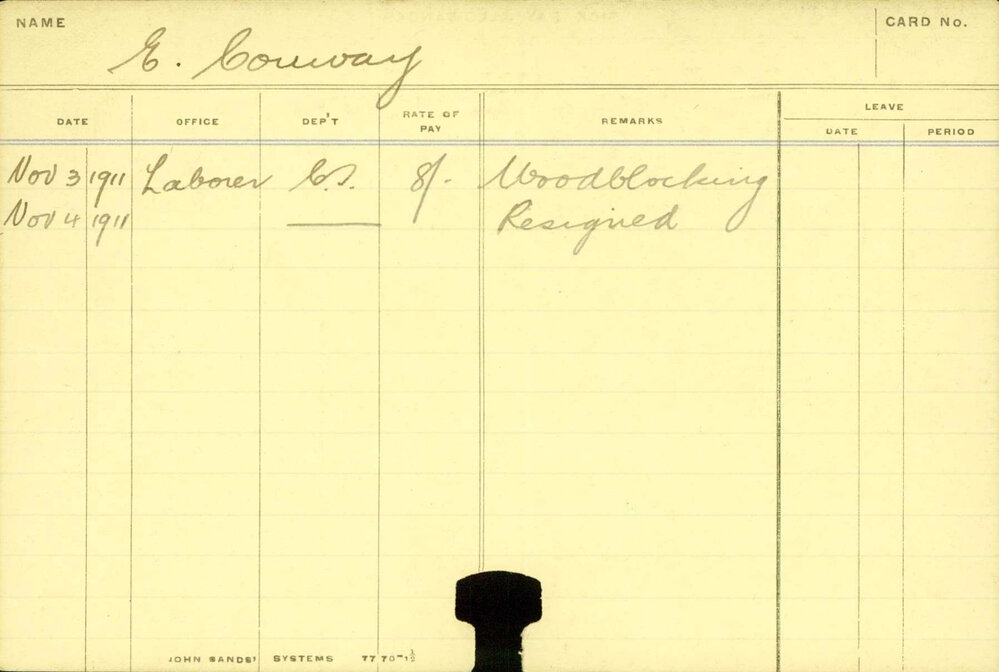 NAME E. Conway CARD No.
DATE OFFICE DEP'T RATE OF PAY REMARKS LEAVE
DATE PERIOD
Nov 3 1911 Laborer C.S. 8/- Woodblocking
Nov 4 1911 Resigned
JOHN SANDS' SYSTEMS 7770-1½